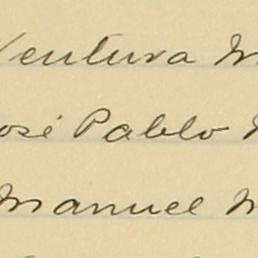 Ventura M
José Pablo
Manuel M